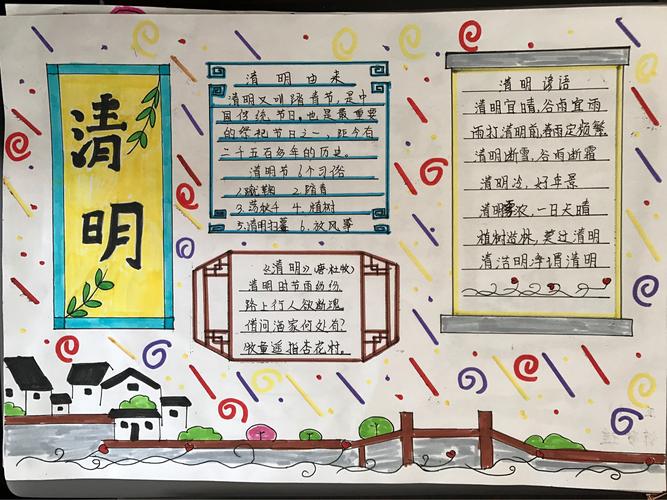 清明
清明由来
清明又叫踏青节,是中
国传统节日。也是最重要
的祭祀节日之一,距今有
二千五百多年的历史。
清明节6个习俗
1.蹴鞠 2.踏青
3.荡秋千 4.植树
5.清明扫墓 6.放风筝
《清明》(唐杜牧)
清明时节雨纷纷
路上行人欲断魂。
借问酒家何处有?
牧童遥指杏花村。
清明谚语
清明宜晴,谷雨宜雨
雨打清明前,春雨定频繁
清明断雪,谷雨断霜
清明冷,好年景
清明雾浓,一日天晴
植树造林,莫过清明